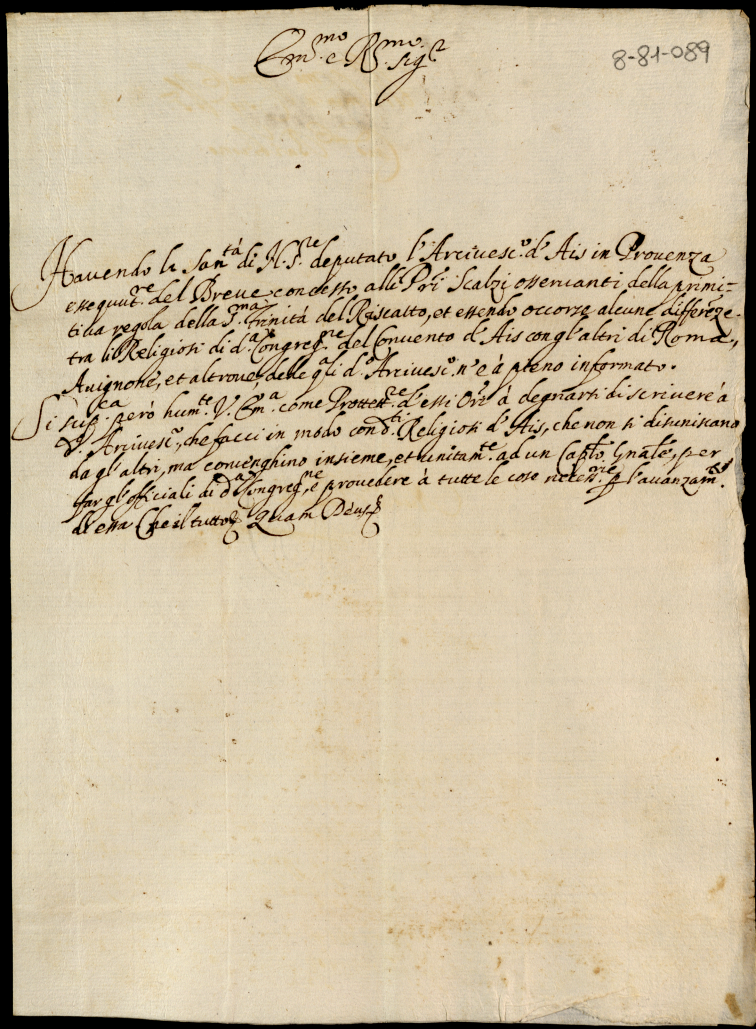 Em.mo e R.mo Sig.r
8-81-089
Havendo la San.tà di N. S.re deputato l'Arcivesc.o d'Ais in Provenza
essequut.re del Breve concesso alli Pri Scalzi osservanti della primi-
tiva regola della S.ma Trinità del Riscatto, et essendo occorze alcune differēze
tra li Religiosi di d.a Congreg.ne del Convento d'Ais con gl'altri di Roma,
Avignone, et altrove, delle q.li d.o Arcivesc.o n'è à pieno informato.
Si sup.ca però hum.te V. Em.a come Protett.re d'essi Ori à degnarsi di scrivere à
d.o Arcivesc.o, che facci in modo con d.ti Religiosi d'Ais, che non si disuniscano
da gl'altri, ma convenghino insieme, et unitam.te ad un Capto Gnale, per
far gl'officiali di d.a Congreg.ne, e provedere à tutte le cose necess.rie p l'avanzam.to
di essa Che il tutto Quam Deus